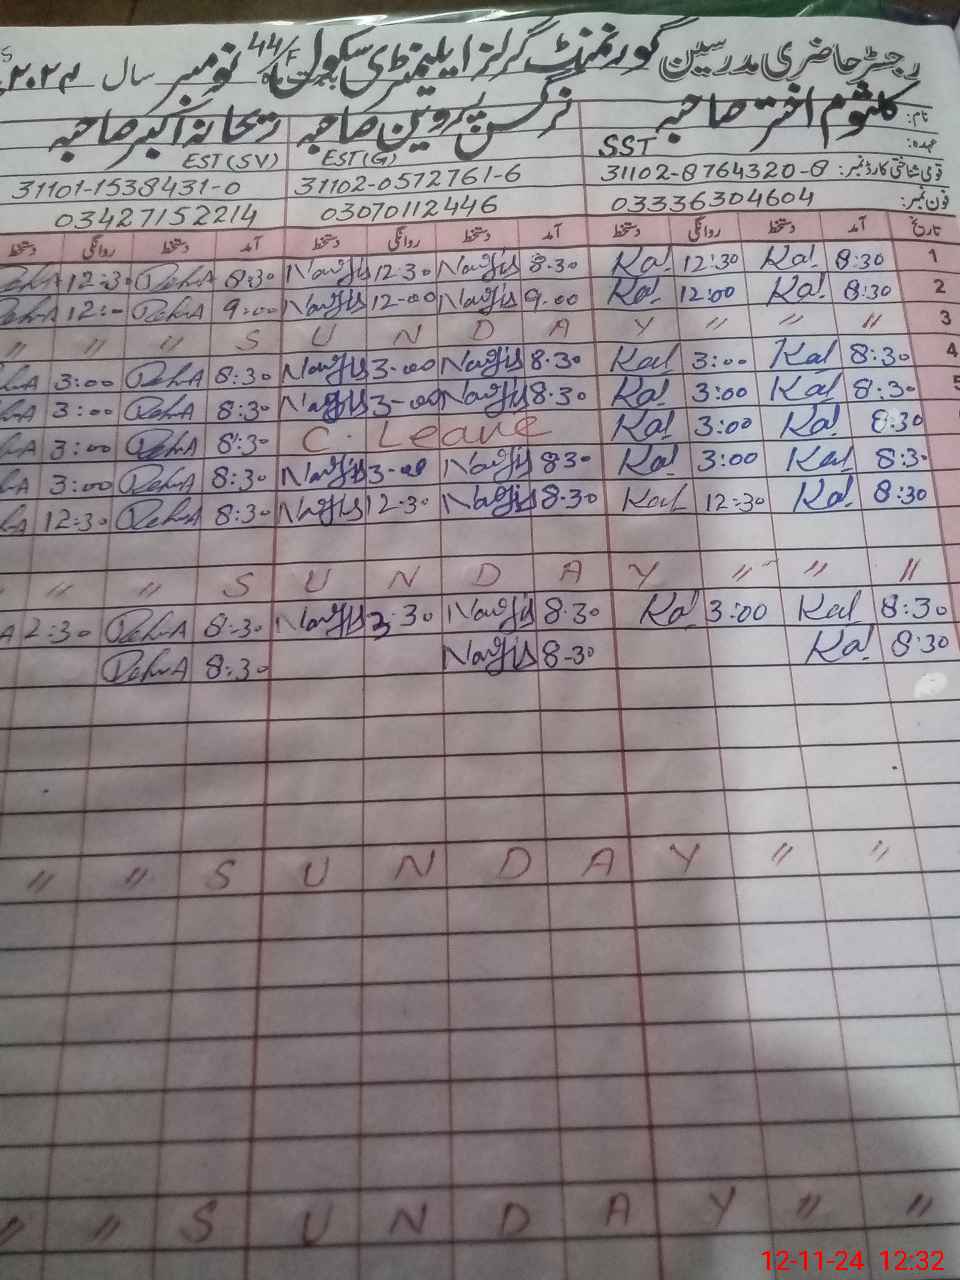 رجسٹر حاضری مدرسین گورنمنٹ گرلز ایلیمنٹری سکول 44/F ماہ نومبر سال ۲۰۲۴
نام: کلثوم اختر صاحبہ نرگس پروین صاحبہ ریحانہ اکبر صاحبہ
عہدہ: SST EST(G) EST(SV)
قومی شناختی کارڈ نمبر: 31102-8764320-8 31102-0572761-6 31101-1538431-0
فون نمبر: 03336304604 03070112446 03427152214
تاریخ آمد دستخط روانگی دستخط آمد دستخط روانگی دستخط آمد دستخط روانگی دستخط
1 8:30 Kal 12:30 Kal 8.30 Nargis 12.30 Nargis 8:30 Reh.A 12:30 Reh.A
2 8:30 Kal 12:00 Kal 9.00 Nargis 12-00 Nargis 9:00 Reh.A 12:- Reh.A
3 " " " S U N D A Y " " "
4 8:30 Kal 3:00 Kal 8.30 Nargis 3-00 Nargis 8:30 Reh.A 3:00
5 8:30 Kal 3:00 Kal 8.30 Nargis 3-00 Nargis 8:30 Reh.A 3:00
8:30 Kal 3:00 Kal C. Leave 8:30 Reh.A 3:00
8:30 Kal 3:00 Kal 8.30 Nargis 3-00 Nargis 8:30 Reh.A 3:00
8:30 Kal 12:30 Kal 8.30 Nargis 12.30 Nargis 8:30 Reh.A 12:30
" " S U N D A Y " " "
8:30 Kal 3:00 Kal 8.30 Nargis 3.30 Nargis 8:30 Reh.A 2:30
8:30 Kal 8-30 Nargis 8:30 Reh.A
" " S U N D A Y " "
" " S U N D A Y " "
12-11-24 12:32